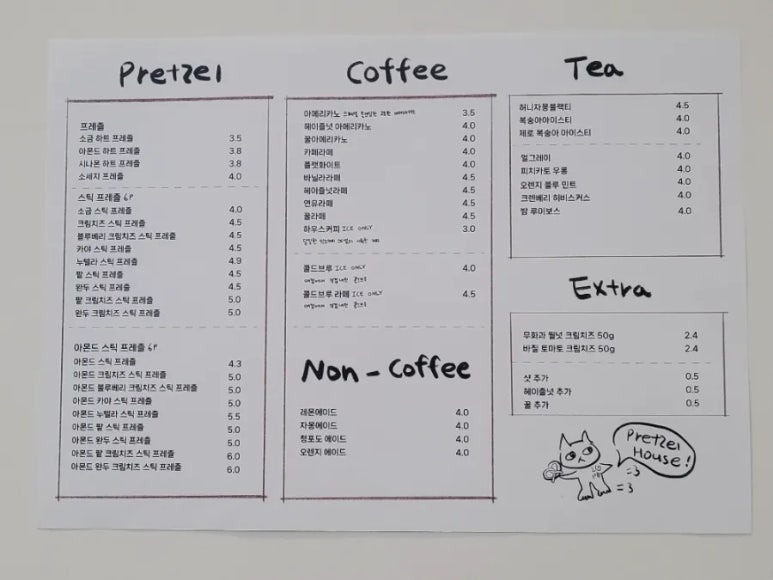 Pretzel
프레즐
소금 하트 프레즐 3.5
아몬드 하트 프레즐 3.8
시나몬 하트 프레즐 3.8
소세지 프레즐 4.0
스틱 프레즐 6P
소금 스틱 프레즐 4.0
크림치즈 스틱 프레즐 4.5
블루베리 크림치즈 스틱 프레즐 4.5
카야 스틱 프레즐 4.5
누텔라 스틱 프레즐 4.9
팥 스틱 프레즐 4.5
완두 스틱 프레즐 4.5
팥 크림치즈 스틱 프레즐 5.0
완두 크림치즈 스틱 프레즐 5.0
아몬드 스틱 프레즐 6P
아몬드 스틱 프레즐 4.3
아몬드 크림치즈 스틱 프레즐 5.0
아몬드 블루베리 크림치즈 스틱 프레즐 5.0
아몬드 카야 스틱 프레즐 5.0
아몬드 누텔라 스틱 프레즐 5.5
아몬드 팥 스틱 프레즐 5.0
아몬드 완두 스틱 프레즐 5.0
아몬드 팥 크림치즈 스틱 프레즐 6.0
아몬드 완두 크림치즈 스틱 프레즐 6.0
Coffee
아메리카노 3.5
헤이즐넛 아메리카노 4.0
꿀아메리카노 4.0
카페라떼 4.0
플랫화이트 4.0
바닐라라떼 4.5
헤이즐넛라떼 4.5
연유라떼 4.5
꿀라떼 4.5
하우스커피 ICE ONLY 3.0
콜드브루 ICE ONLY 4.0
콜드브루 라떼 ICE ONLY 4.5
Non-Coffee
레몬에이드 4.0
자몽에이드 4.0
청포도 에이드 4.0
오렌지 에이드 4.0
Tea
허니자몽블랙티 4.5
복숭아아이스티 4.0
제로 복숭아 아이스티 4.0
얼그레이 4.0
피치카토 우롱 4.0
오렌지 블루 민트 4.0
크렌베리 히비스커스 4.0
밤 루이보스 4.0
Extra
무화과 월넛 크림치즈 50g 2.4
바질 토마토 크림치즈 50g 2.4
샷 추가 0.5
헤이즐넛 추가 0.5
꿀 추가 0.5
Pretzel
House!